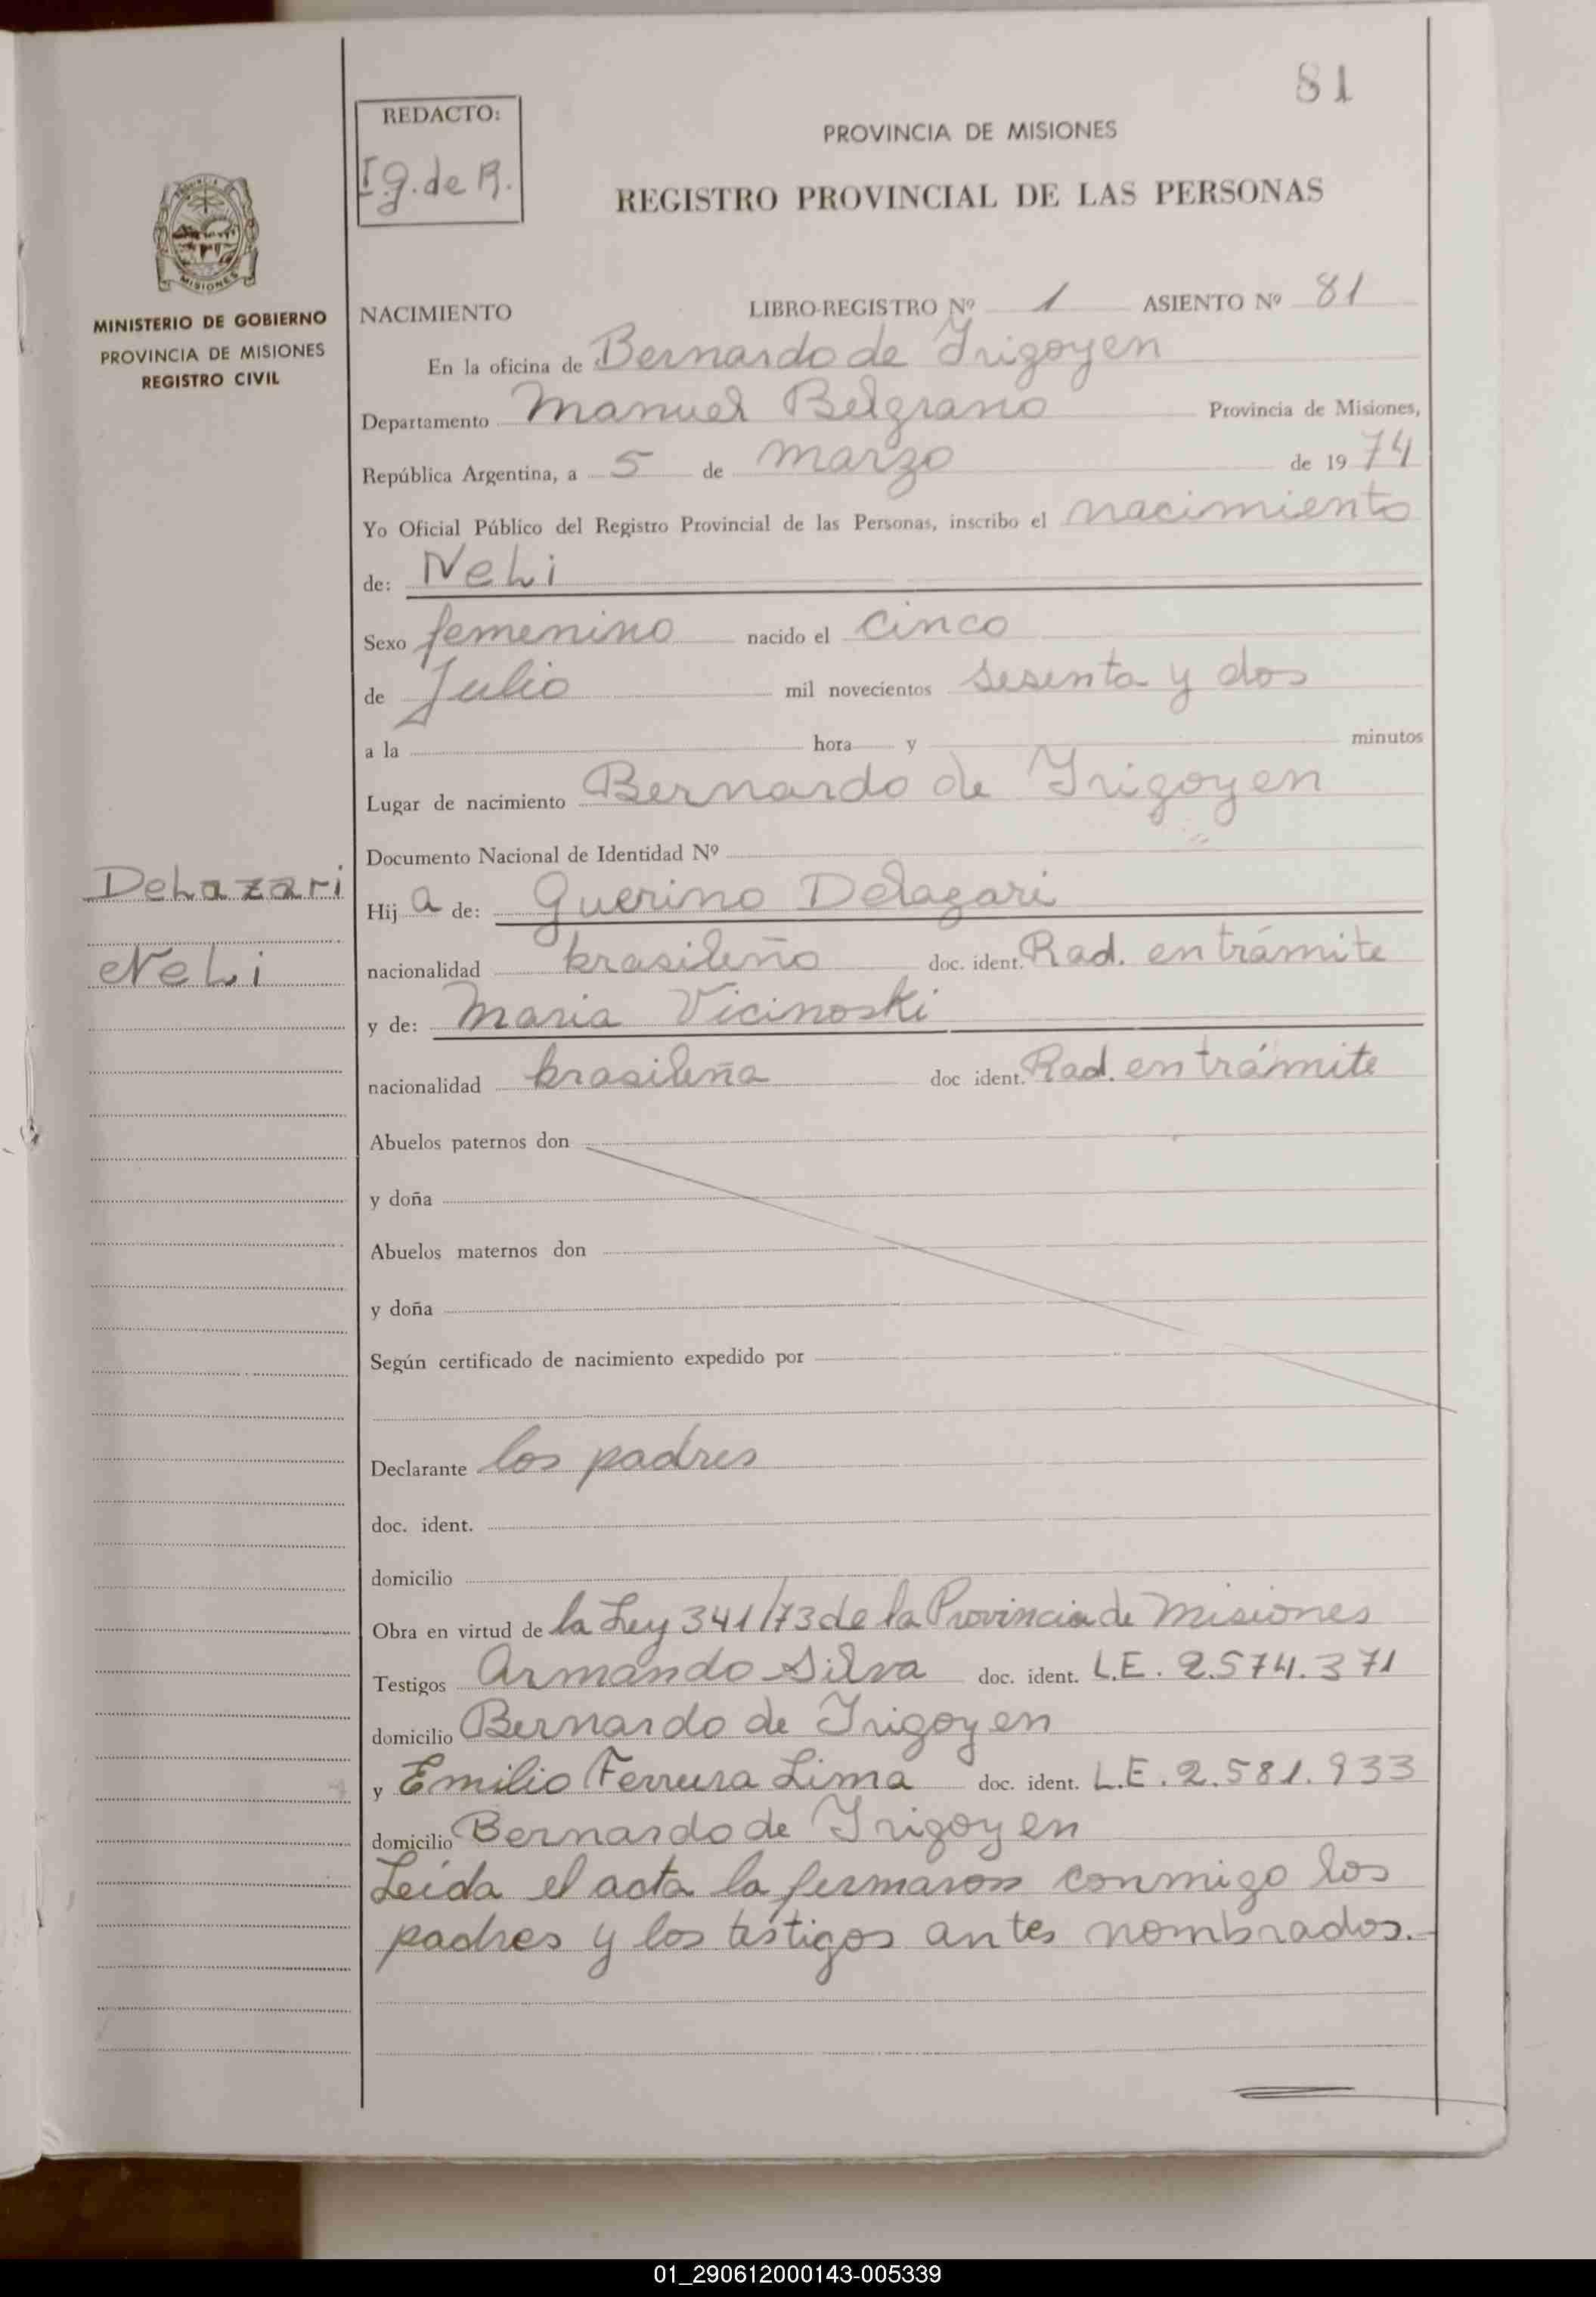 81
REDACTO:
I g. de R.
PROVINCIA DE MISIONES
REGISTRO PROVINCIAL DE LAS PERSONAS
PROVINCIA DE
MISIONES
MINISTERIO DE GOBIERNO
PROVINCIA DE MISIONES
REGISTRO CIVIL
NACIMIENTO LIBRO-REGISTRO Nº 1 ASIENTO Nº 81
En la oficina de Bernardo de Irigoyen
Departamento Manuel Belgrano Provincia de Misiones,
República Argentina, a 5 de marzo de 1974
Yo Oficial Público del Registro Provincial de las Personas, inscribo el nacimiento
de: NeLi
Sexo femenino nacido el cinco
de Julio mil novecientos sesenta y dos
a la hora y minutos
Lugar de nacimiento Bernardo de Irigoyen
Documento Nacional de Identidad Nº
DeLazari
Hij a de: Guerino Delazari
NeLi
nacionalidad brasileño doc. ident. Rad. en trámite
y de: Maria Vicinoski
nacionalidad brasileña doc ident. Rad. en trámite
Abuelos paternos don
y doña
Abuelos maternos don
y doña
Según certificado de nacimiento expedido por
Declarante los padres
doc. ident.
domicilio
Obra en virtud de la Ley 341/73 de la Provincia de Misiones
Testigos Armando Silva doc. ident. L.E. 2.574.371
domicilio Bernardo de Irigoyen
y Emilio Ferreira Lima doc. ident. L.E. 2.581.933
domicilio Bernardo de Irigoyen
Leída el acta la fermaron conmigo los
padres y los testigos antes nombrados.-
01_290612000143-005339